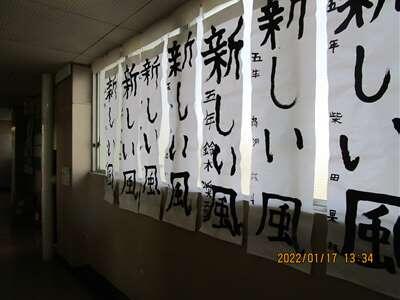 新しい風
五年 柴田
新しい風
五年
新しい風
五年 鈴木
新しい風
新しい風
新しい風
新しい風
2022/01/17 13:34